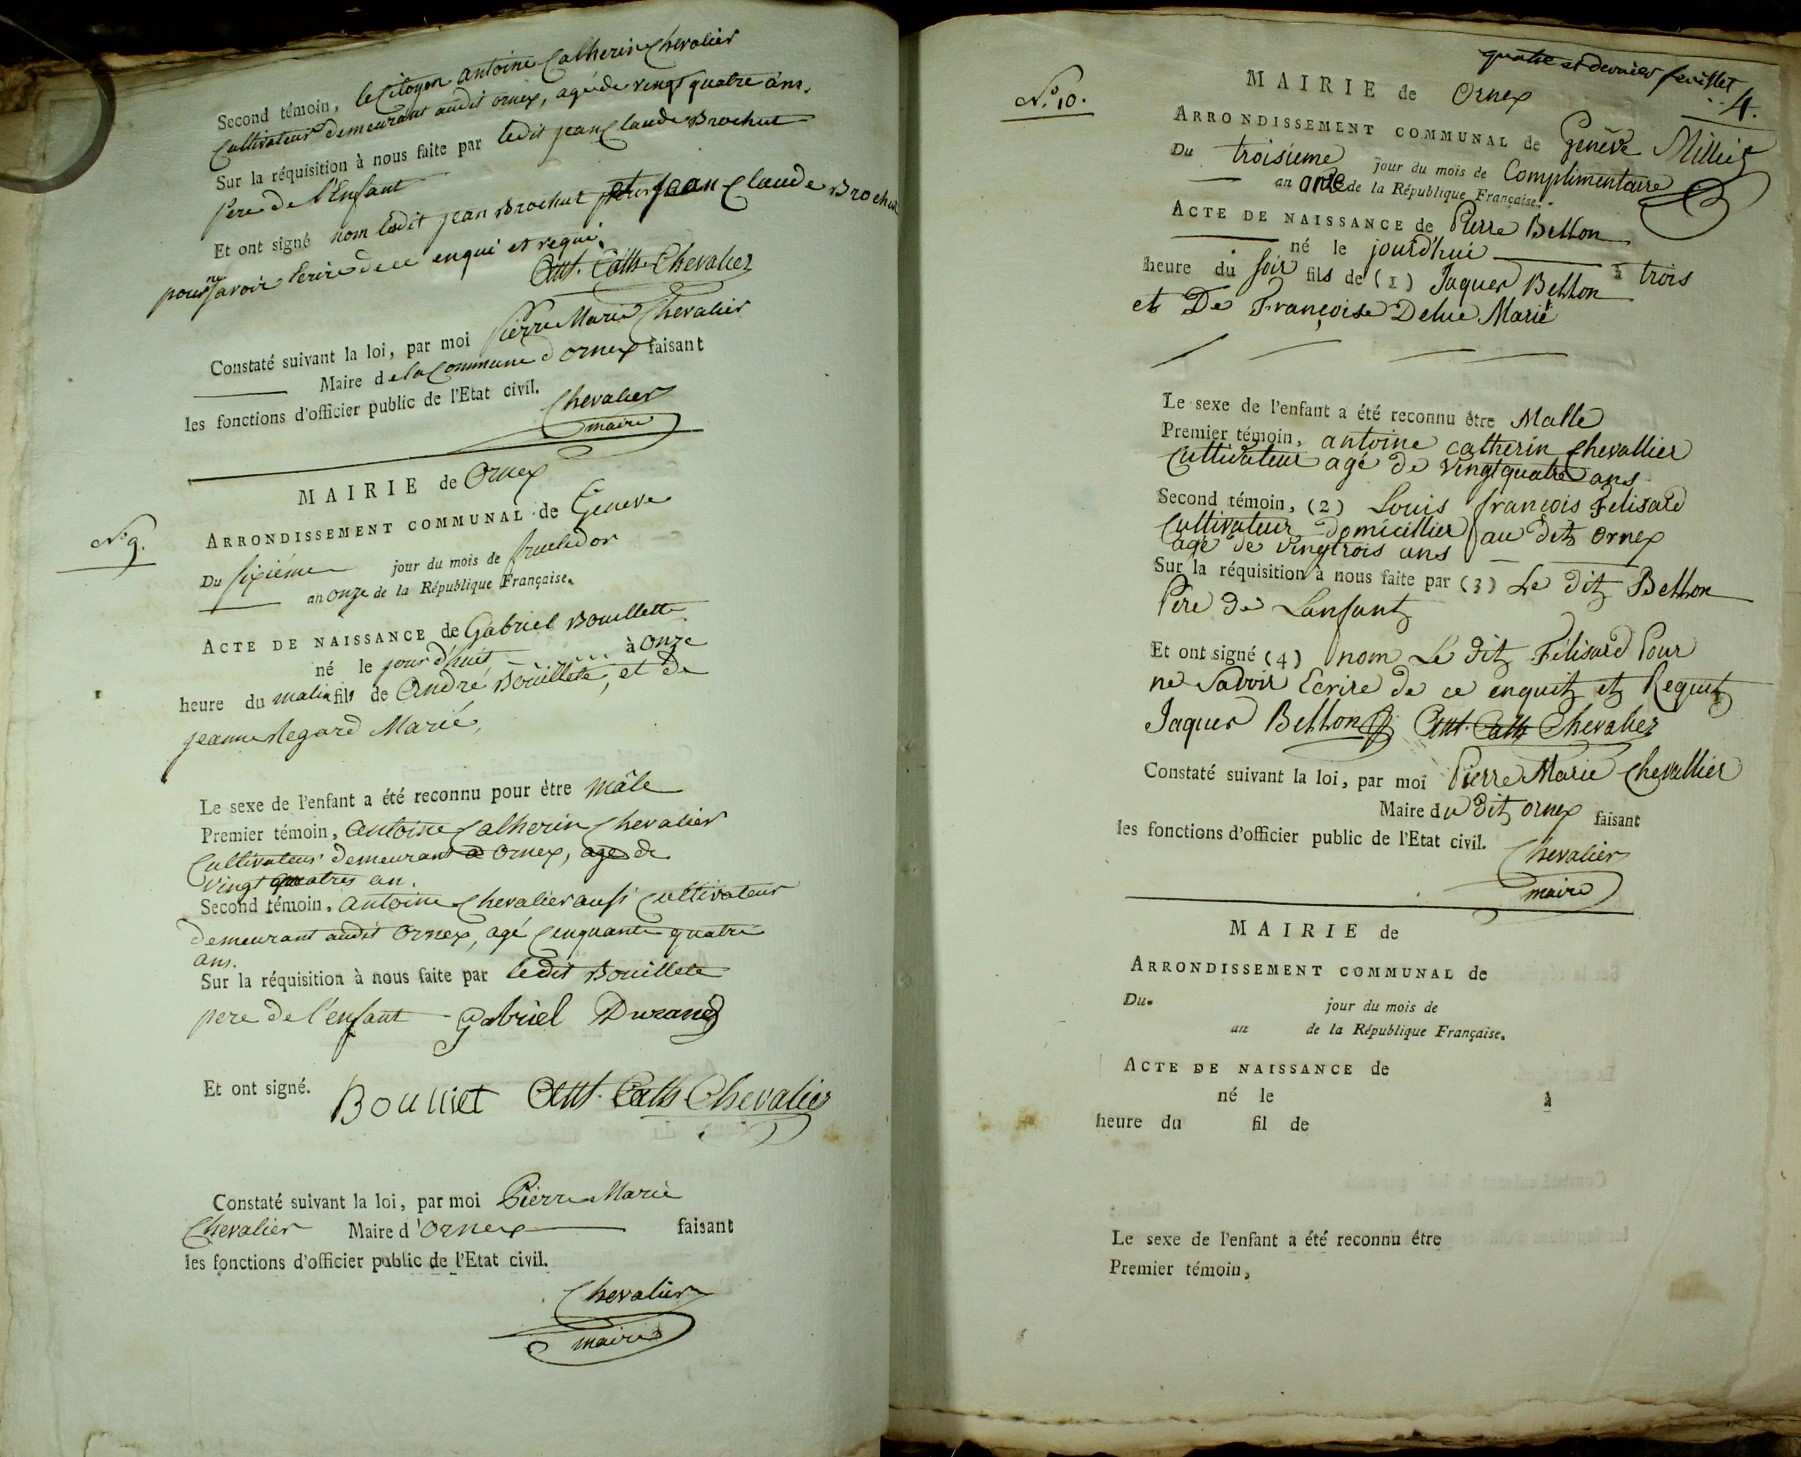 Second témoin, le Citoyen antoine Catherin Chevalier
Cultivateur demeurant audit ornex, agé de vingt quatre ans.
Sur la réquisition à nous faite par ledit jean Claude Brochut
père de l'Enfant
Et ont signé nom ledit jean Brochut jean Claude Brochut
pour ne savoir Ecrire de ce enqui et requi.
Ant. Cath. Chevalier
Constaté suivant la loi, par moi Pierre Marie Chevalier
Maire de la Commune d'ornex faisant
les fonctions d'officier public de l'Etat civil.
Chevalier
maire
N.º 9.
MAIRIE de Ornex
ARRONDISSEMENT COMMUNAL de Geneve
Du sixième jour du mois de fructidor
an onze de la République Française.
ACTE DE NAISSANCE de Gabriel Bouillette
né le jour d'huit à onze
heure du matin fils de André Bouillete, et de
jeanne Regard Marié,
Le sexe de l'enfant a été reconnu pour être mâle
Premier témoin, antoine Catherin Chevalier
Cultivateur demeurant a Ornex, age de
vingt quatres an.
Second témoin, antoine Chevalier ausi Cultivateur
demeurant audit Ornex, agé Cenquante quatre
ans.
Sur la réquisition à nous faite par ledit Bouillete
pere de l'enfant Gabriel Durand
Et ont signé. Boulliet Ant. Cath Chevalier
Constaté suivant la loi, par moi Pierre Marie
Chevalier Maire d'Ornex faisant
les fonctions d'officier public de l'Etat civil.
Chevalier
maire
quatre et dernier feuillet
4.
N.º 10.
MAIRIE de Ornex
ARRONDISSEMENT COMMUNAL de Genève
Du troisieme jour du mois de Complimentaire
an onze de la République Française.
ACTE DE NAISSANCE de Pierre Bellon
né le jourd'hui à trois
heure du soir fils de (1) Jaques Bellon
et De Françoise Delue Marié
Le sexe de l'enfant a été reconnu être Malle
Premier témoin, antoine catherin Chevallier
Cultivateur agé de vingtquatre ans
Second témoin, (2) Louis françois Felisard
Cultivateur domicillier au dit ornex
agé de vingtrois ans
Sur la réquisition à nous faite par (3) Le dit Bellon
Père de Lanfant
Et ont signé (4) nom Le dit Félisard Pour
ne Savoir Ecrire de ce enquit et Requit
Jaques Bellon Ant. Cath Chevalier
Constaté suivant la loi, par moi Pierre Marie Chevallier
Maire du dit ornex faisant
les fonctions d'officier public de l'Etat civil.
Chevalier
maire
MAIRIE de
ARRONDISSEMENT COMMUNAL de
Du. jour du mois de
an de la République Française.
ACTE DE NAISSANCE de
né le à
heure du fil de
Le sexe de l'enfant a été reconnu être
Premier témoin,